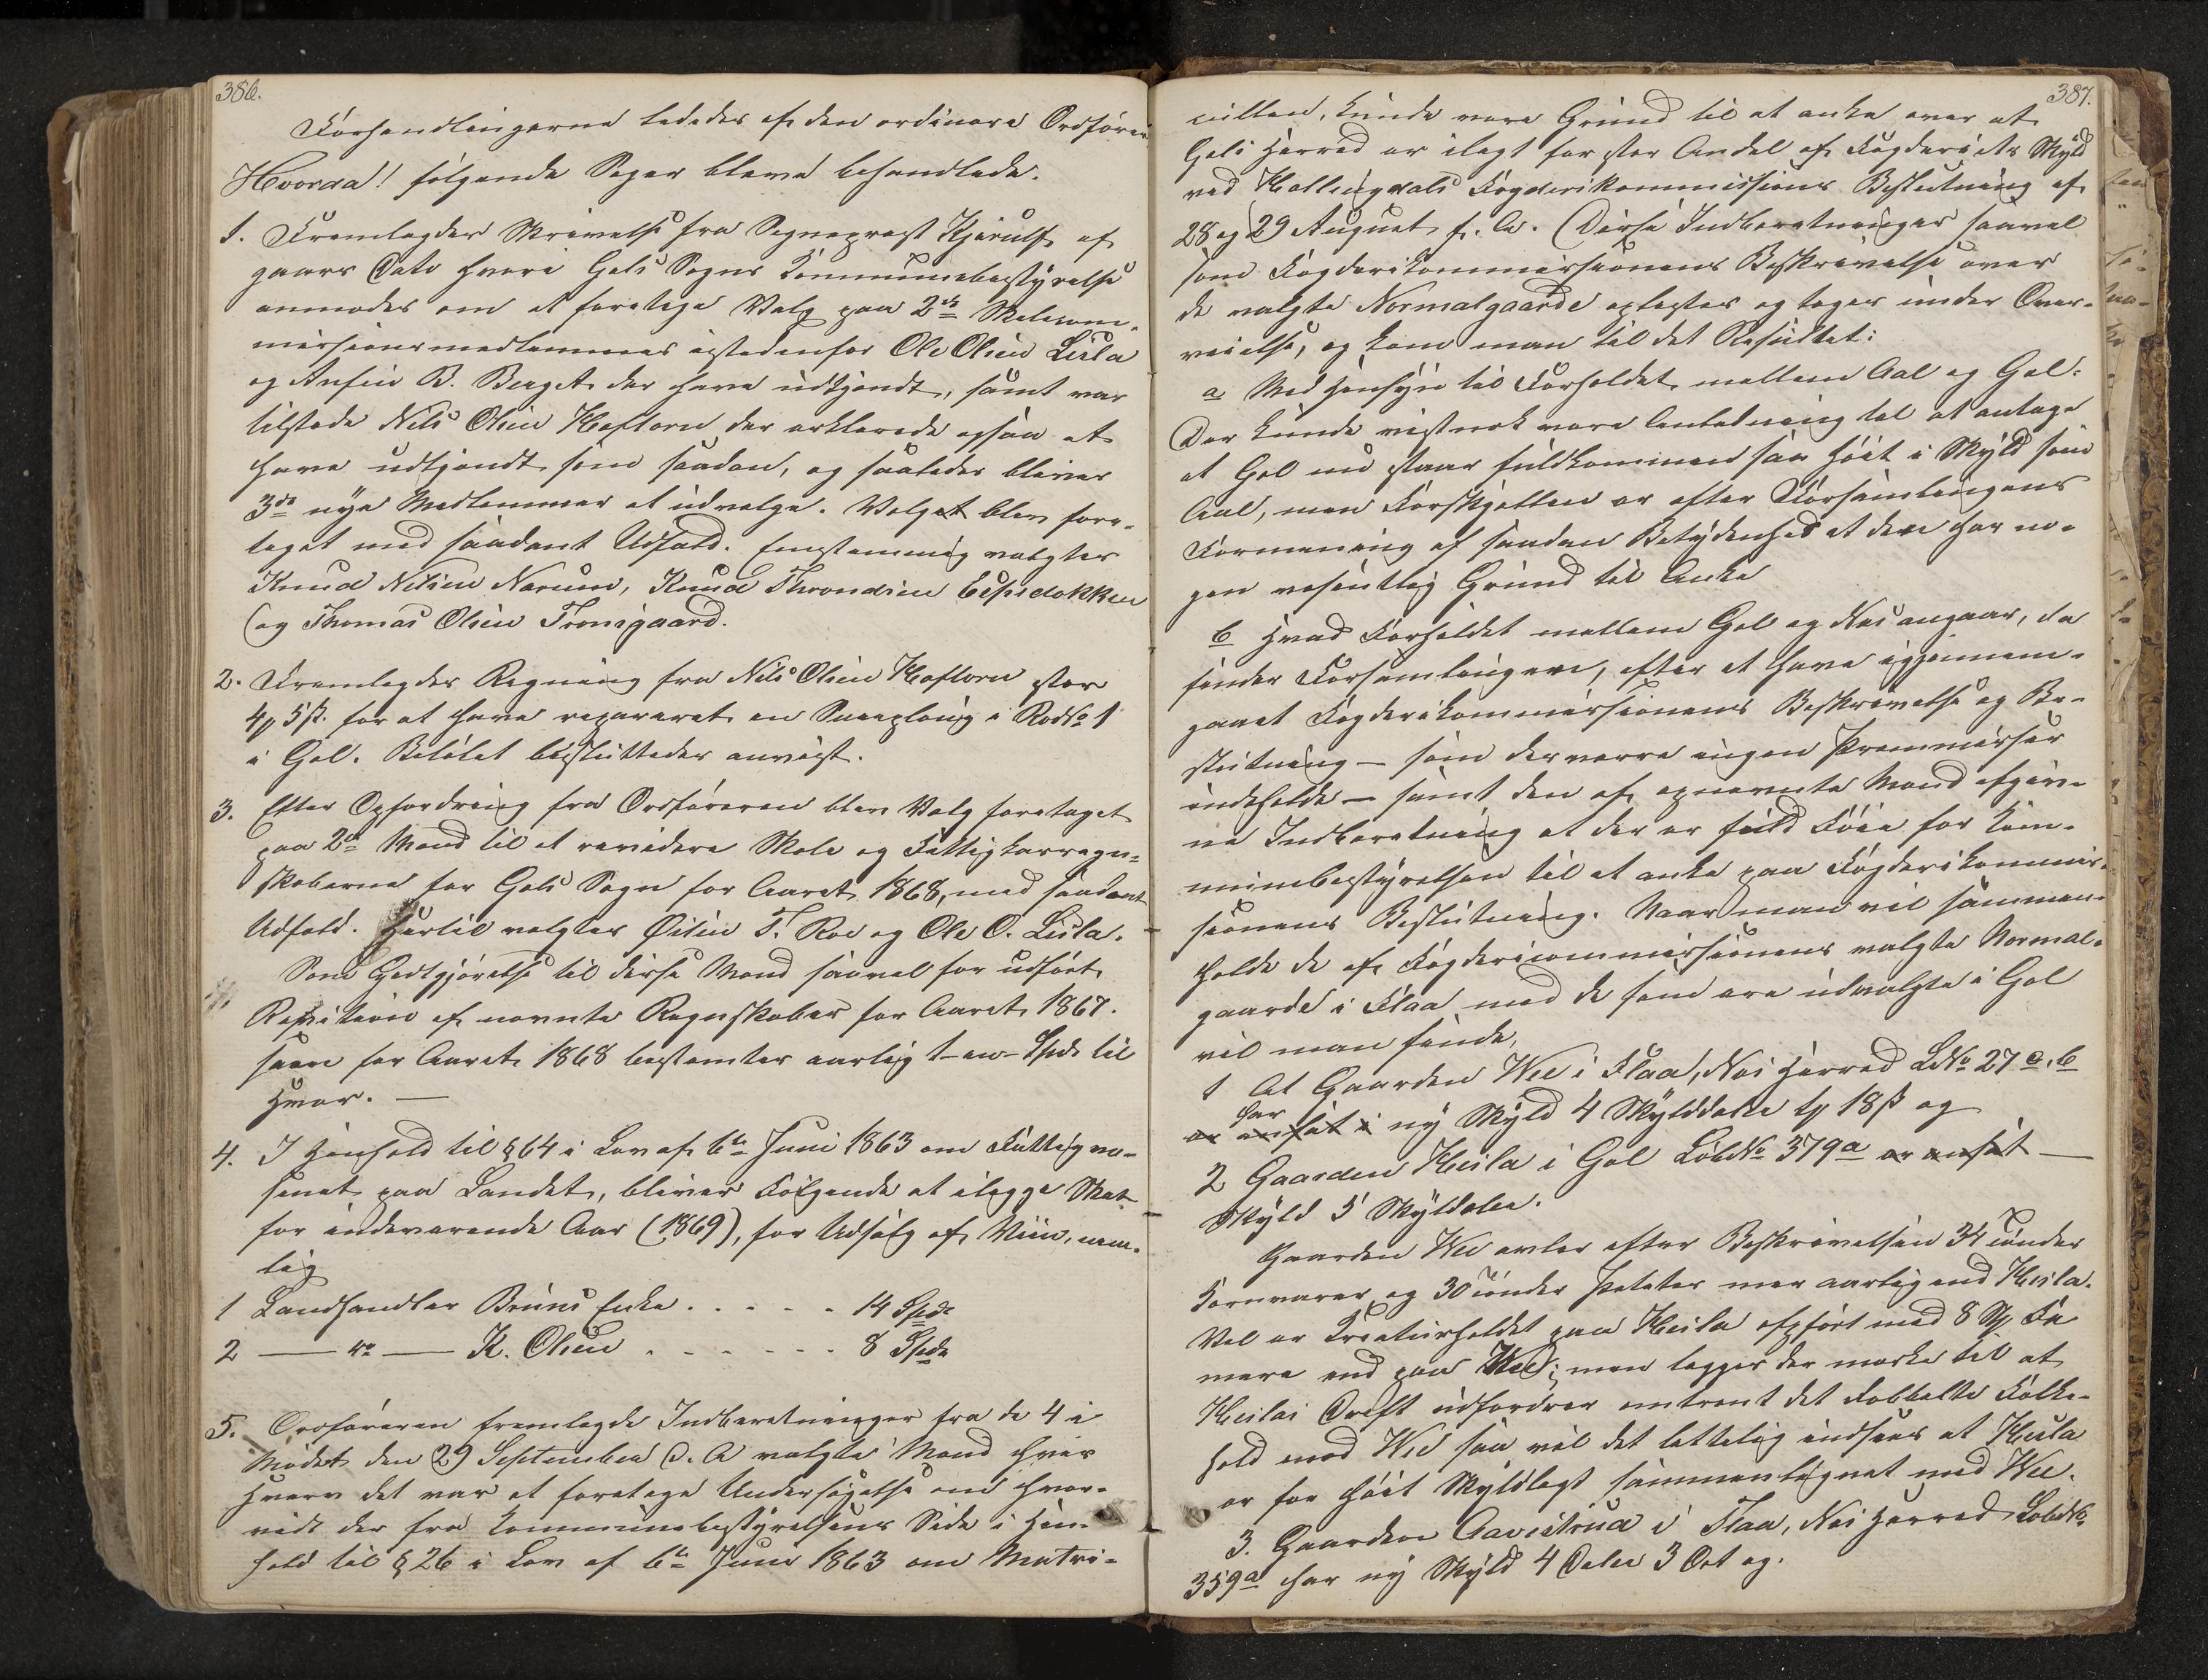 386.
Forhandlingerne lededes af den ordinære Ordfører
Hvorda! følgende Sager bleve behandlede.
1. Fremlagdes Skrivelse fra Sognepræst Kjerulf af
gaars Dato hvori Gols Sogns Kommunebestyrelse
anmodes om at foretage Valg paa 2de Skolecom-
missionsmedlemmer istedenfor Ole Olsen Liila
og Anfin B. Berget der have udtjendt, samt var
tilstede Nils Olsen Hoftorn der erklærede ogsaa at
have udtjendt som saadan, og saaledes bliver
3de nye Medlemmer at udvælge. Valget blev fore-
taget med saadant Udfald. Eenstemmig valgtes
Knud Nilsen Narum, Knud Throndsen Eispedokken
og Thomas Olsen Tronsgaard.
2. Fremlagdes Regning fra Nils Olsen Hoftorn stor
4 5 ß. for at have repareret en Sneeploug i Rode No 1
i Gol. Beløbet besluttedes anvist.
3. Efter Opfordring fra Ordføreren blev Valg foretaget
paa 2de Mænd til at revidere Skole og Fattigkasseregn-
skaberne for Gols Sogn for Aaret 1868, med saadant
Udfald. Hertil valgtes Øisten T. Roe og Ole O. Liila.
Som Godtgjørelse til disse Mænd saavel for udført
Revision af nævnte Regnskaber for Aaret 1867.
som for Aaret 1868 bestemtes aarlig 1 - en - Spd til
Hver. —
4. I Henhold til § 64 i Lov af 6te Juni 1863 om Fattigvæ-
senet paa Landet, bliver Følgende at ilægge Skat
for indeværende Aar (1869), for Udsalg af Viin, nem-
lig
1 Landhandler Bruns Enke . . . . . 14 Spd
2 — do — K. Olsen . . . . . . . 8 Spd
5. Ordføreren fremlagde Indberetninger fra de 4 i
Mødet den 29 September d. A valgte Mænd hvis
Hverv det var at foretage Undersøgelse om hvor-
vidt der fra Kommunebestyrelsens Side i Hen-
hold til § 26 i Lov af 6te Juni 1863 om Matri-
387.
culen, kunde være Grund til at anke over at
Gols Herred er ilagt for stor Andel af Fogderiets Skyld
ved Hallingdals Fogderikommissions Beslutning af
28 og 29 August f. A. Disse Indberetninger saavel
som Fogderikommissionens Beskrivelse over
de valgte Normalgaarde oplæstes og toges under Over-
veielse, og kom man til det Resultat:
a Med Hensyn til Forholdet mellem Aal og Gol:
Der kunde vistnok være Anledning til at antage
at Gol nu staar fuldkommen saa høit i Skyld som
Aal, men Forskjellen er efter Forsamlingens
Formening af saadan Betydenhed at den har no-
gen væsentlig Grund til Anke
b Hvad Forholdet mellem Gol og Næs angaar, da
finder Forsamlingen, efter at have igjennem-
gaaet Fogderikommissionens Beskrivelse og Be-
slutning — som desværre ingen Præmisser
indeholde — samt den af opnævnte Mænd afgiv-
ne Indberetning at der er fuld Føie for Kom-
munebestyrelsen til at anke paa Fogderikommis-
sionens Beslutning. Naar man vil sammen-
holde de af Fogdericommissionens valgte Normal-
gaarde i Flaa med de som ere udvalgte i Gol
vil man finde,
1 At Gaarden Wee i Flaa, Næs Herred LNo 27 a. b
har
er ansat i ny Skyld 4 Skylddaler 18 ß og
2 Gaarden Heila i Gol LøbeNo 379a er ansat —
Skyld 5 Skyldaler.
Gaarden Wee avler efter Beskrivelsen 34 Tønder
Kornvarer og 30 Tønder Poteter mer aarlig end Heila.
Vel er Kreaturholdet paa Heila opført med 8 Fæ
mere end paa Wee; men lægges der mærke til at
Heilas Drift udfordrer omtrent det dobbelte Folke-
hold mod Wee saa vil det lettelig indsees at Heila
er for høit Skyldlagt sammenlignet med Wee.
3. Gaarden Aavestrud i Flaa, Næs Herred LøbeNo
359a har ny Skyld 4 Daler 3 Ort og.